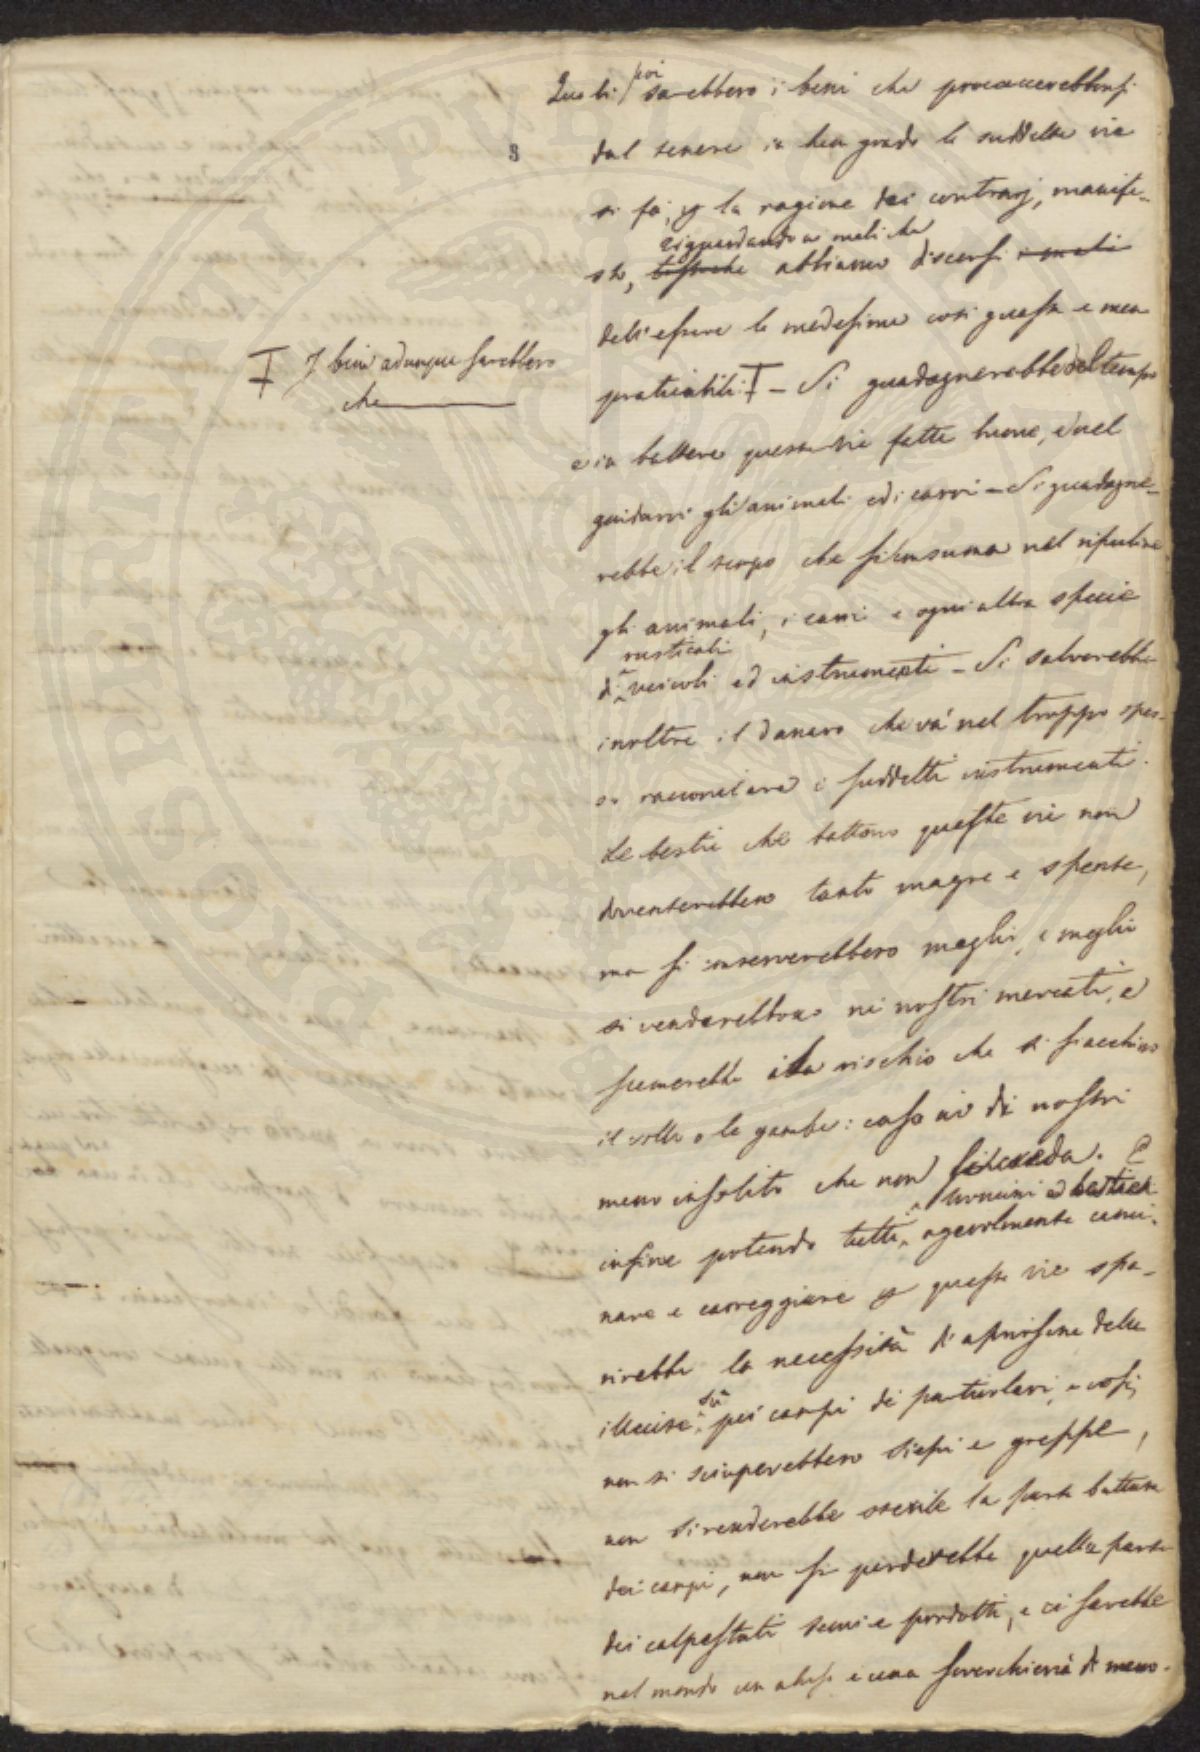 Quali poi sarebbero i beni che procaccerebbonsi
dal tenere in buon grado le suddette vie
si fa, p la ragione dei contrarj, manife-
riguardando a mali che
sto, abbiamo discorsi i mali
dell'essere le medesime così guaste e mea
praticabili. Ŧ - Si guadagnerebbe del tempo
Ŧ I beni adunque sarebbero
che
e in battere queste vie fatte buone, e nel
guidarvi gli animali ed i carri - Si guadagne-
rebbe il tempo che si consuma nel ripulire
gli animali, i carri e ogni altra specie
rusticali
di veicoli ed instrumenti - Si salverebbe
inoltre il danaro che va nel troppo spes-
so racconciare i suddetti instrumenti.
Le bestie che battono queste vie non
diventerebbero tanto magre e spente,
ma si conserverebbero meglio, e meglio
si venderebbono ne nostri mercati, e
scemerebbe il rischio che si fiacchino
il collo o le gambe: caso ai dì nostri
meno insolito che non si creda. E
uomini e bestie
infine potendo tutti agevolmente cami-
nare e carreggiare p queste vie spa-
rirebbe la necessità di aprirsene delle
illecite su pei campi de particolari, e così
non si sciuperebbero siepi e greppe,
non si renderebbe sterile la parte battuta
dei campi, non si perderebbe quella parte
dei calpestati semi e prodotti, e ci sarebbe
nel mondo un abuso e una soverchieria di meno.
3